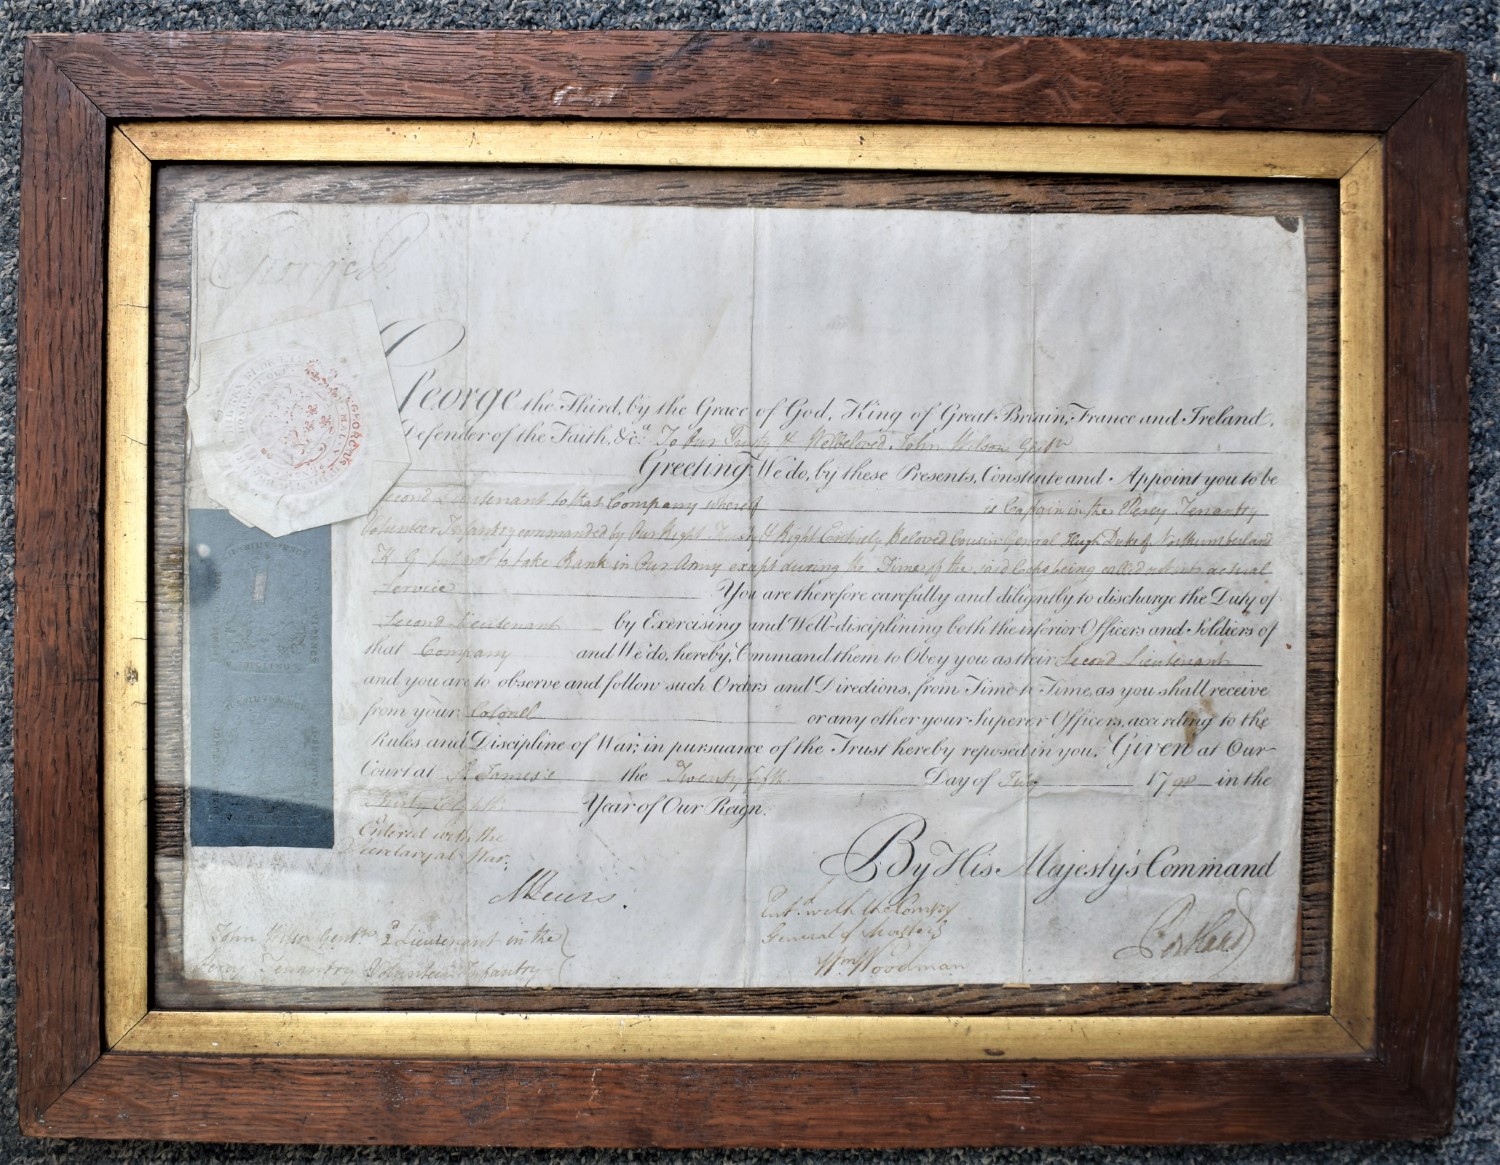 George R
George the Third, by the Grace of God, King of Great Britain, France and Ireland,
Defender of the Faith, &c.a To Our Trusty & Welbeloved John Wilson Gent.n
Greeting We do, by these Presents, Constitute and Appoint you to be
Second Lieutenant to that Company whereof is Captain in the Percy Tenantry
Volunteer Infantry commanded by Our Right Trusty & Right Entirely Beloved Cousin General Hugh Duke of Northumberland
K G but not to take Rank in Our Army except during the Time of the said Corps being called out into actual
Service You are therefore carefully and diligently to discharge the Duty of
Second Lieutenant by Exercising and Well-disciplining both the inferior Officers and Soldiers of
that Company and We do, hereby, Command them to Obey you as their Second Lieutenant
and you are to observe and follow such Orders and Directions, from Time to Time, as you shall receive
from your Colonel or any other your Superior Officers, according to the
Rules and Discipline of War, in pursuance of the Trust hereby reposed in you. Given at Our
Court at St. James's the Twenty fifth Day of July 1798 in the
Thirty Eighth Year of Our Reign.
Entered with the
Secretary at War.
By His Majesty's Command
MLewis.
Ent.d with the Comsy
General of Musters
Wm Woodman
Portland
John Wilson Gent.n 2d Lieutenant in the
Percy Tenantry Volunteer Infantry